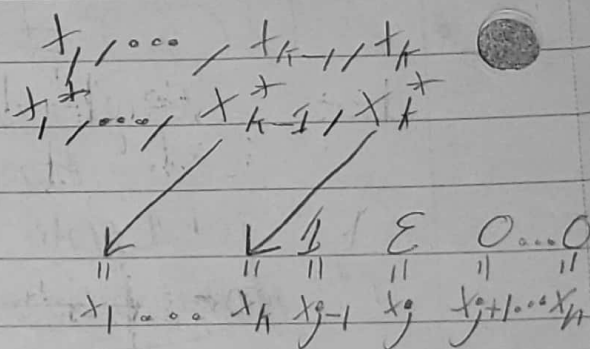 x₁, ..., x_{k-1}, x_k
x₁*, ..., x*_{k-1}, x_k*
1 ε 0...0
= = = = = =
x₁ .... x_k x_{j-1} x_j x_{j+1}...x_n